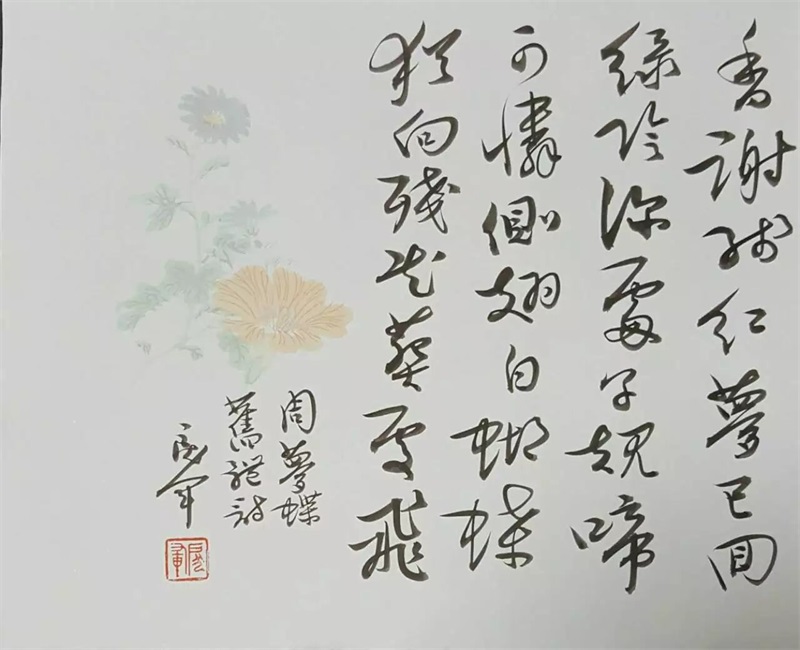 香謝紅夢已回
綠陰深處子規啼
可憐側翅白蝴蝶
猶向殘花葬處飛
周夢蝶
舊體詩